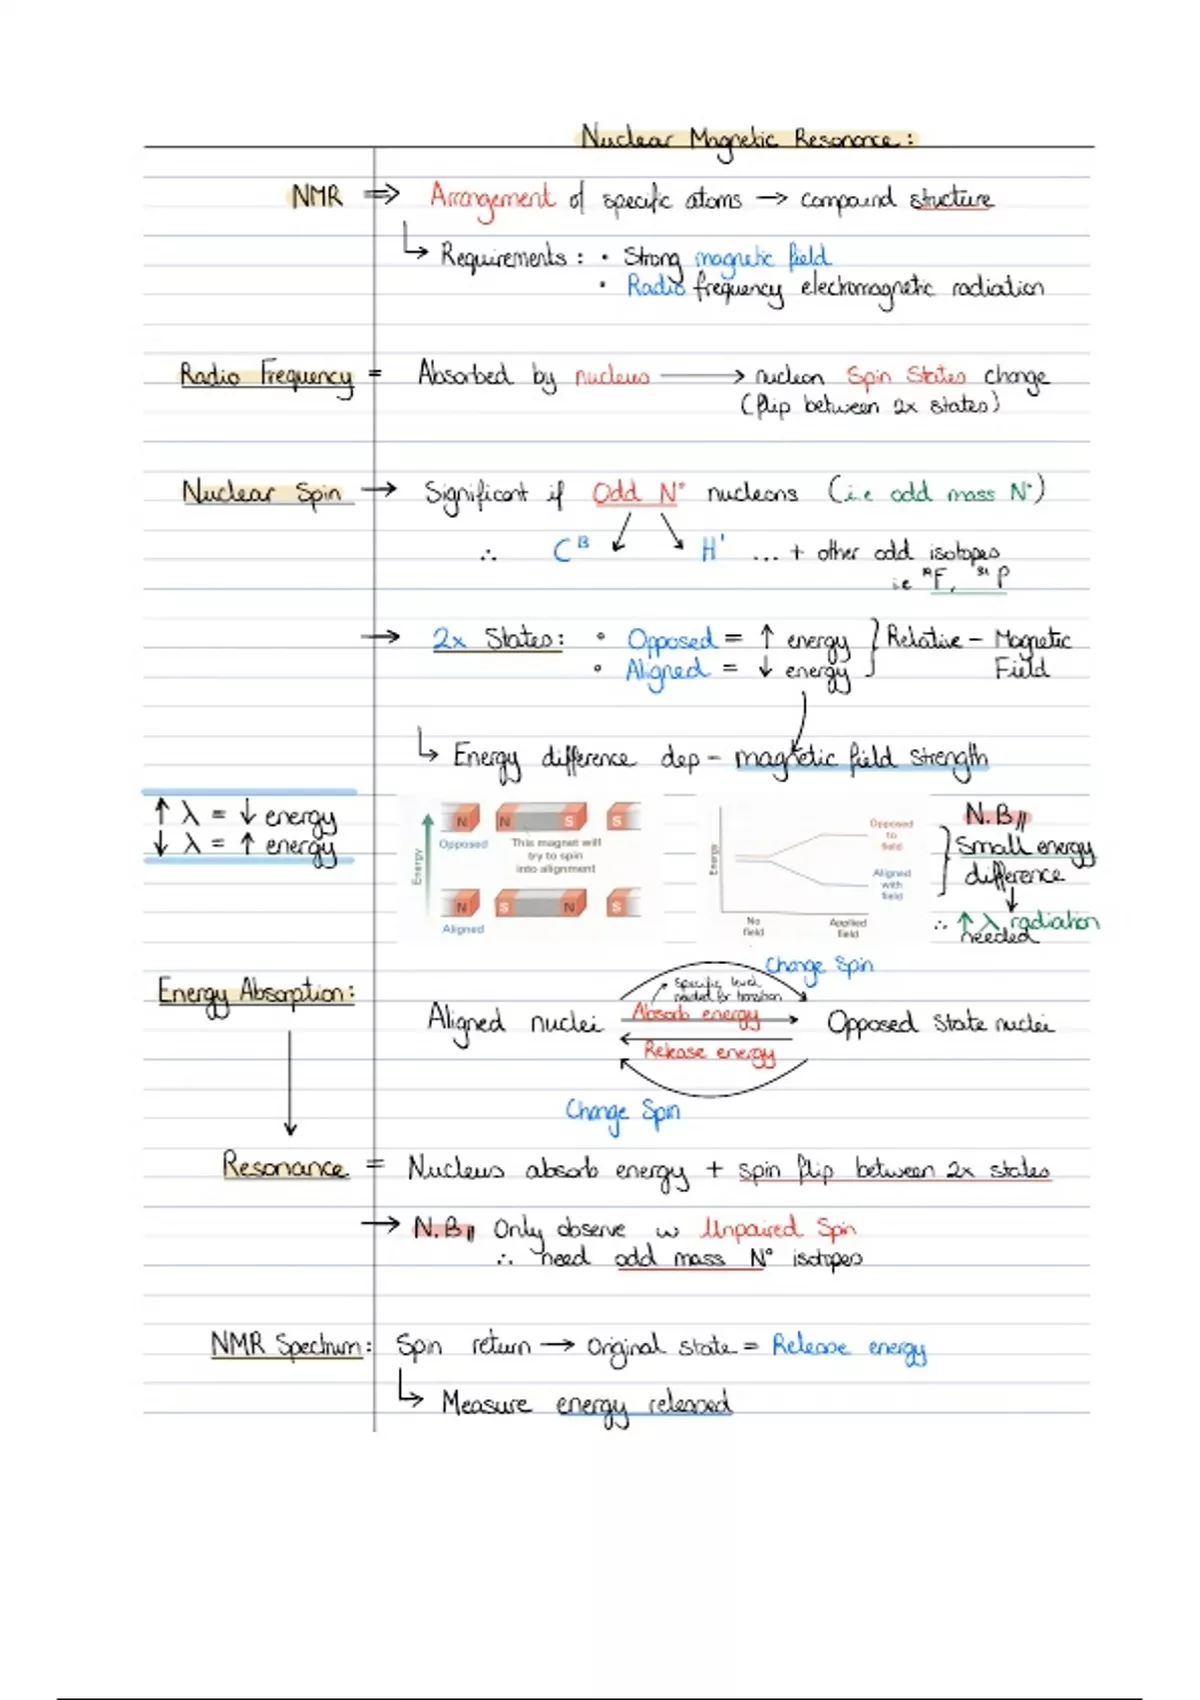 Nuclear Magnetic Resonance:
NMR ⇒ Arrangement of specific atoms → compound structure
↳ Requirements: • Strong magnetic field
• Radio frequency electromagnetic radiation
Radio Frequency = Absorbed by nucleus → nucleon Spin States change
(flip between 2x states)
Nuclear Spin → Significant if Odd N° nucleons (i.e odd mass N°)
∴ C¹³ ↙ ↘ H¹ ... + other odd isotopes
i.e ¹⁹F, ³¹P
→ 2x States: • Opposed = ↑ energy } Relative - Magnetic
• Aligned = ↓ energy Field
↳ Energy difference dep - magnetic field strength
↑ λ = ↓ energy
↓ λ = ↑ energy
Energy
N N S S
Opposed
This magnet will
try to spin
into alignment
N S N S
Aligned
Energy
Opposed
to
field
Aligned
with
field
No
field
Applied
field
N.B
Small energy
difference
↓
∴ ↑ λ radiation
needed
Energy Absorption:
Change Spin
Specific level
needed for transition
Aligned nuclei Absorb energy Opposed State nuclei
Release energy
Change Spin
Resonance = Nucleus absorb energy + spin flip between 2x states
→ N.B Only observe w Unpaired Spin
∴ need odd mass N° isotopes
NMR Spectrum: Spin return → Original state = Release energy
↳ Measure energy released